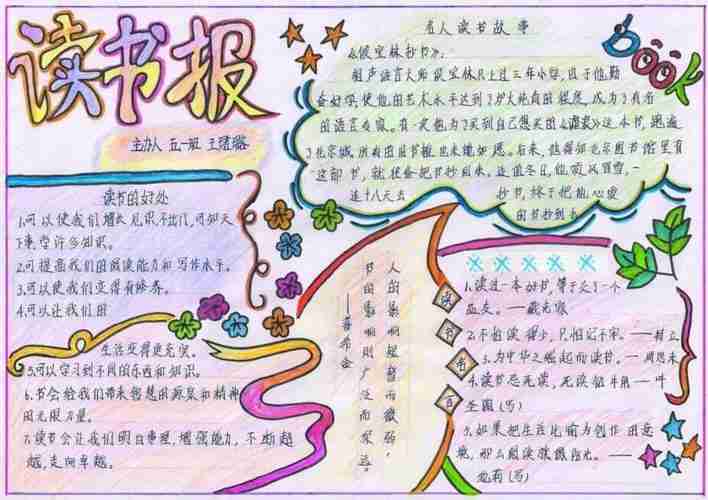 读书报
主办人 五一班 王珺璐
读书的好处
1.可以使我们增长见识不出门,可知天
下事,学许多知识。
2.可提高我们的阅读能力和写作水平。
3.可以使我们变得有修养。
4.可以让我们的
生活变得更充实。
5.可以学习到不同的东西和知识。
6.书会给我们带来智慧的源泉和精神
的无限力量。
7.读书会让我们明白事理,增强能力,不断超
越,走向卓越。
名人读书故事
《侯宝林抄书》:
相声语言大师侯宝林只上过三年小学,由于他勤
奋好学,使他的艺术水平达到了炉火纯青的程度,成为了有名
的语言专家。有一次他为了买到自己想买的《谑浪》这本书,跑遍
了北京城所有的旧书摊也未能如愿。后来,他得知北京图书馆里有
这部书,就决定把书抄回来。适值冬日,他顶风冒雪,一
连十八天去 抄书,终于把他心爱
的书抄到手
Book
人的影响短暂而微弱,
书的影响则广泛而深远。
——普希金
读书名言
1.读过一本好书,等于交了一个
益友。——臧克家
2.不怕读得少,只怕记不牢。——
3.为中华之崛起而读书。——周恩来
4.读书忌死读,死读钻牛角——叶
圣陶(写)
5.如果把生活比喻为创作的意
境,那么阅读就像阳光。——
池莉(写)